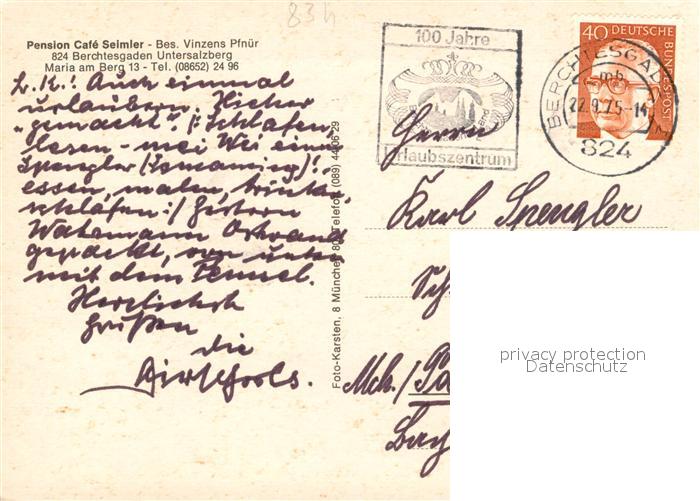 83h
Pension Café Seimler - Bes. Vinzens Pfnür
824 Berchtesgaden Untersalzberg
Maria am Berg 13 - Tel. (08652) 24 96
L. K.! Auch einmal
urlaubern. Hieher
"gemacht". /: Schlafen,
lesen - mei Wei eine
Spengler (Ismaning)!,
essen, malen, trinken
schlafen :/ Gestern
Watzmann Ostwand
gepackt, von unten
mit dem Pensel.
Herzlichst
Grüßen
die
Foto-Karsten, 8 München 80, Telefon (089) 44 06 29
100 Jahre
Urlaubszentrum
BERCHTESGADEN
mb
22.9.75-14
824
40
DEUTSCHE
BUNDESPOST
Herrn
Karl Spengler
Sch
Mch./Pa
Bay
privacy protection
Datenschutz